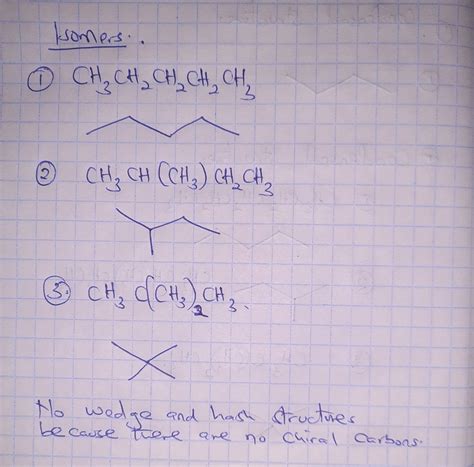 Isomers:.
① CH₃CH₂CH₂CH₂CH₃
② CH₃CH(CH₃)CH₂CH₃
③. CH₃C(CH₃)₂CH₃.
No wedge and hash structures
because there are no chiral carbons.